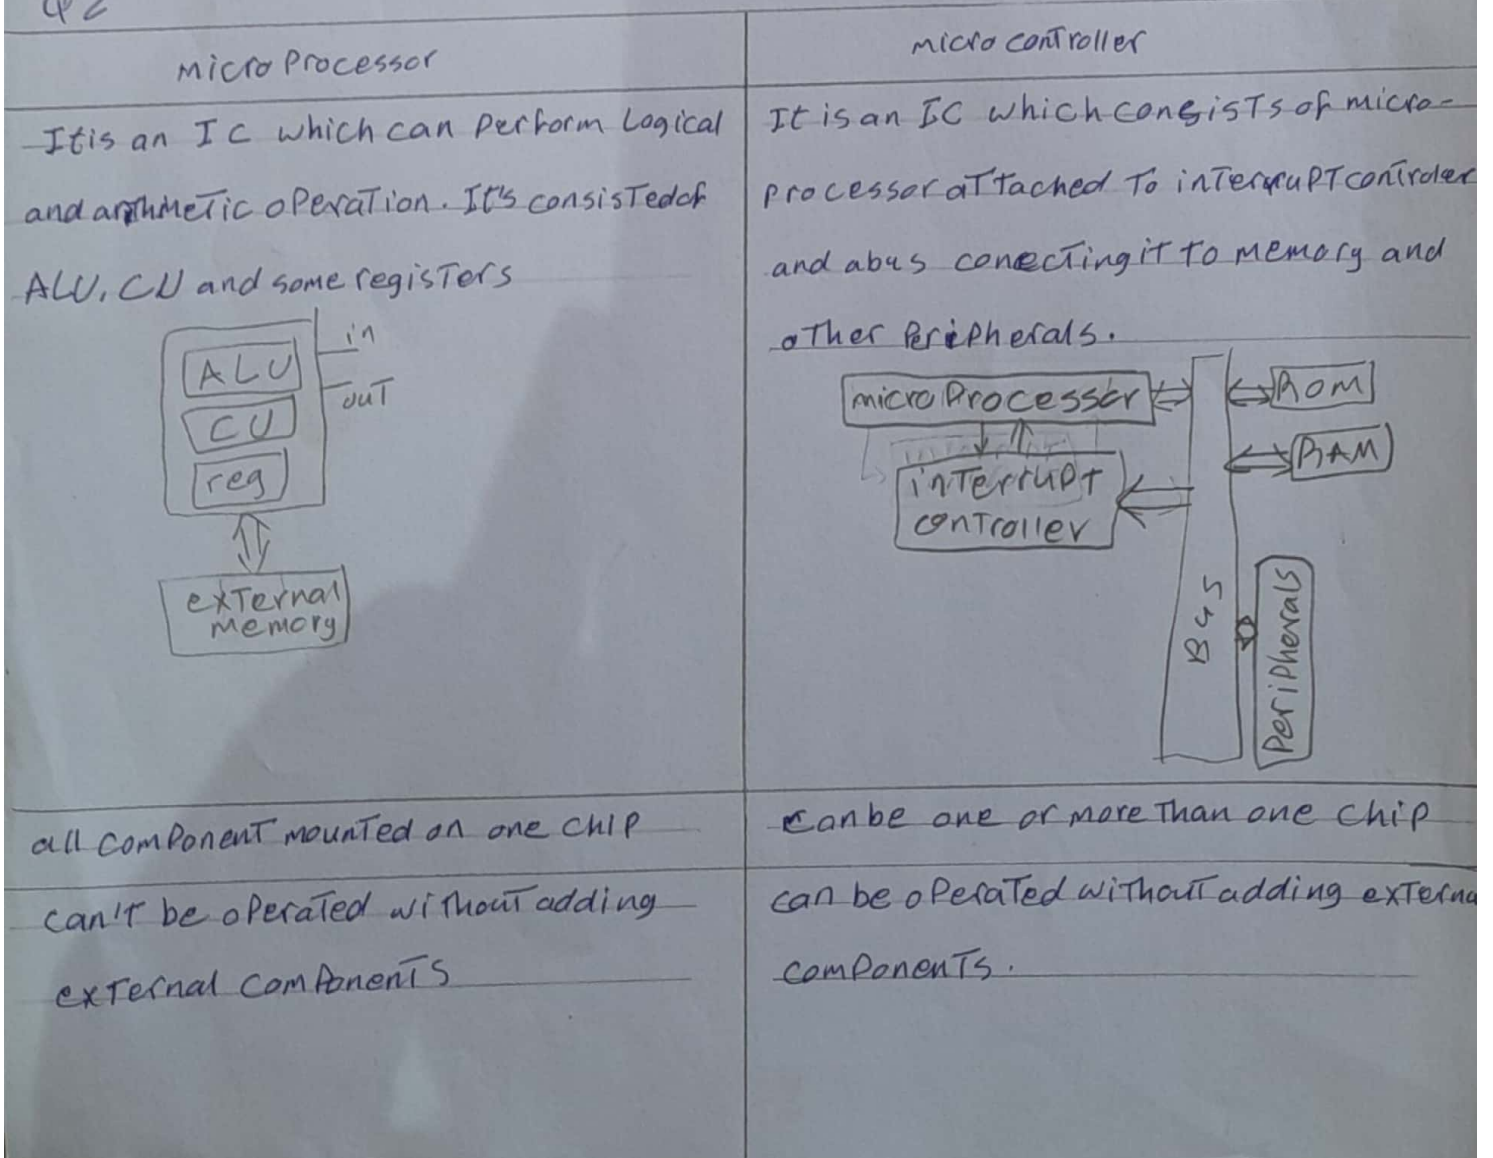 Q2
micro Processor
micro controller
It is an IC which can perform Logical
and arthmetic operation. It's consisted of
ALU, CU and some registers
in
out
ALU
CU
reg
external
memory
It is an IC which consists of micro-
processor attached to interrupt controler
and a bus conecting it to memory and
other Peripherals.
micro Processor
ROM
RAM
interrupt
controller
Bus
Peripherals
all component mounted on one chip
can be one or more than one chip
can't be operated without adding
external components
can be operated without adding externa
components.